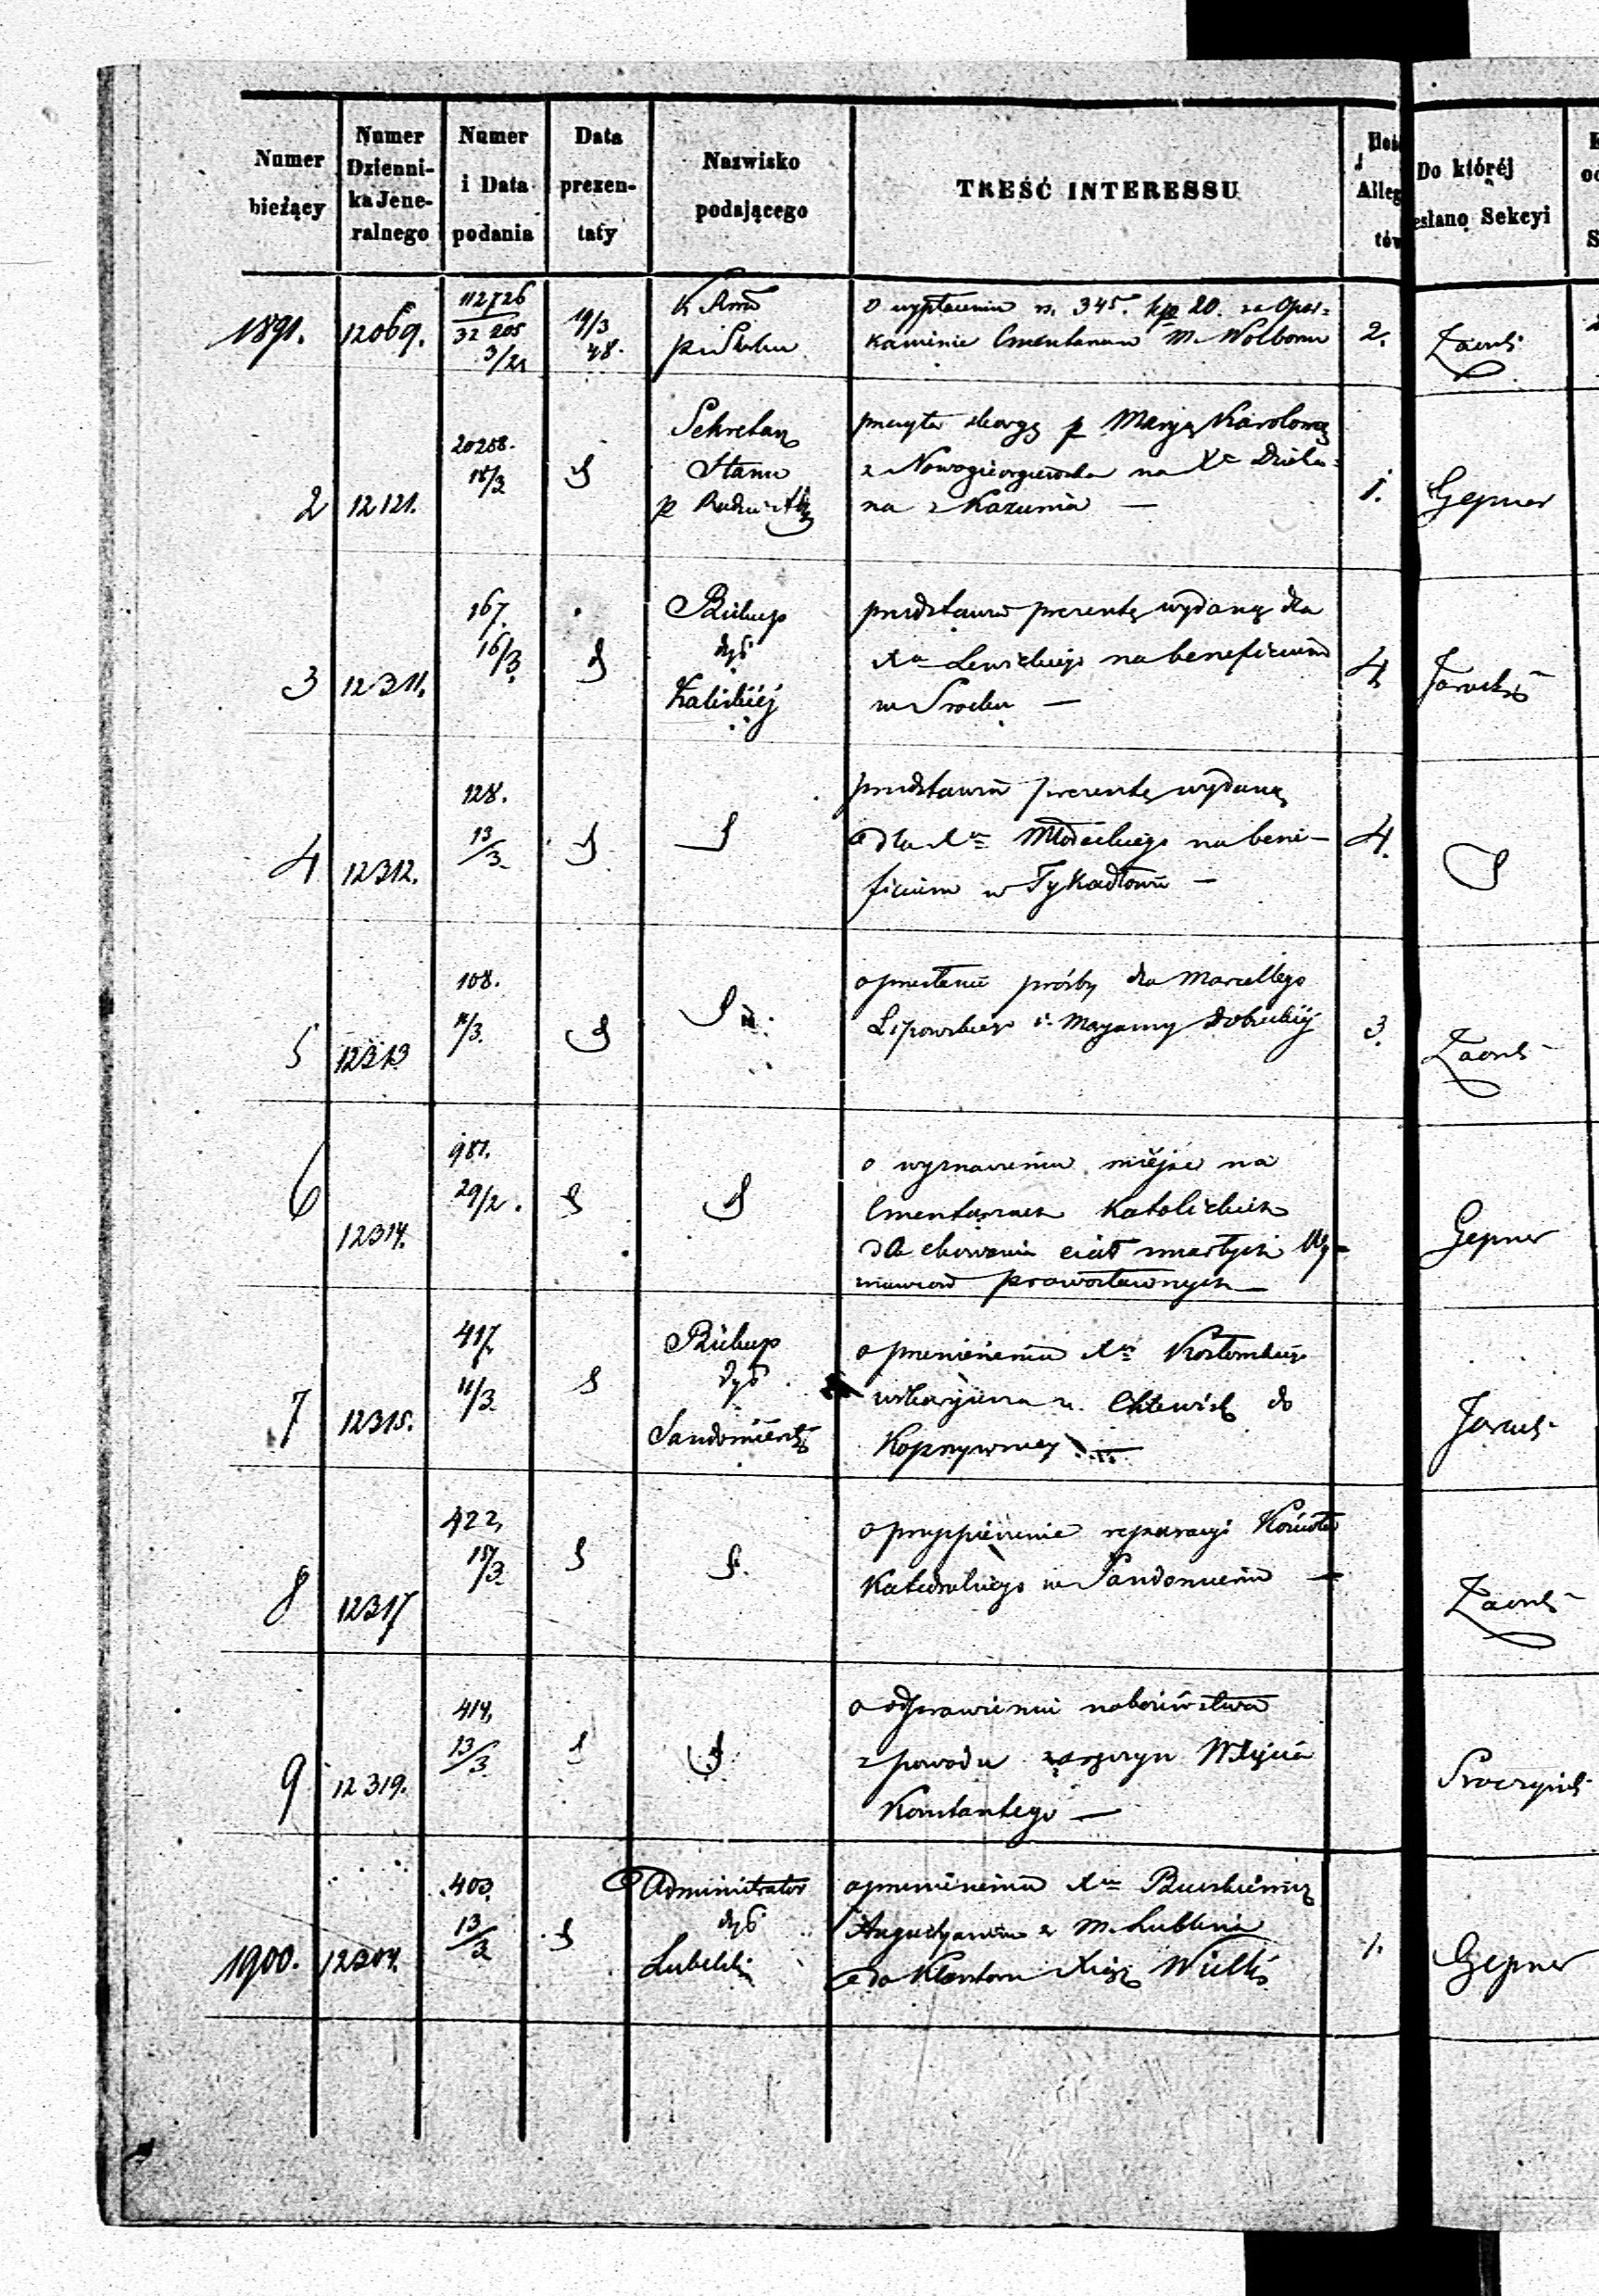 Numer bieżący
Numer Dziennika Jeneralnego
Numer i Data podania
Data prezentaty
Nazwisko podającego
TREŚĆ INTERESSU
Allegatów
Do któréj
esłano Sekcyi
1891. 12069. 112726
32205
19/3
48.
o wypłacenie rs. 345. kp 20. za Opar=
kanienie Cmentarza M. Wolborzu
2.
2 12121. 20258.
15/3
Sekretarz
Stanu
skargę p Maryę Karolową
z Nowogieorgiewska na Xa
na z Kazunia —
1. Gepner
3 12311. 167.
16/3
Biskup
dyŏ
Kaliskiéj
przedstawia prezentę wydaną dla
Xa Lewickiego na beneficium
w Srocku —
4
4 12312. 128.
13/3
przedstawia prezentę wydaną
dla Xa Młodeckiego na bene-
ficium w Tykadłowie —
4.
5 12313 108.
11/3.
o przesłanie prośby dla Marcellego
Lipowskiego i Maryanny
3.
6 12314. 981.
29/2.
o wyznaczenie miejsc na
Cmentarzach Katolickich
dla chowania ciał zmarłych Wy-
znawców prawosławnych —
Gepner
7 12315. 417.
11/3
Biskup
dyŏ
Sandomiersk
o przeniesienie Xa
wikaryusza z Chlewisk do
Koprzywnicy —
8 12317 422,
15/3
o przyspieszenie reparacyi Kościoła
Katedralnego w Sandomierzu —
9 12319. 414,
13/3
o odprawienie nabożeństwa
z powodu zaszczyn W. Xięcia
Konstantego —
1900. 12304. 403.
13/3
Administrator
dyŏ
Lubelski
o przeniesienie Xa
Augustyanina z M. Lublina
do Klasztoru Xiąż Wielki
1. Gepner